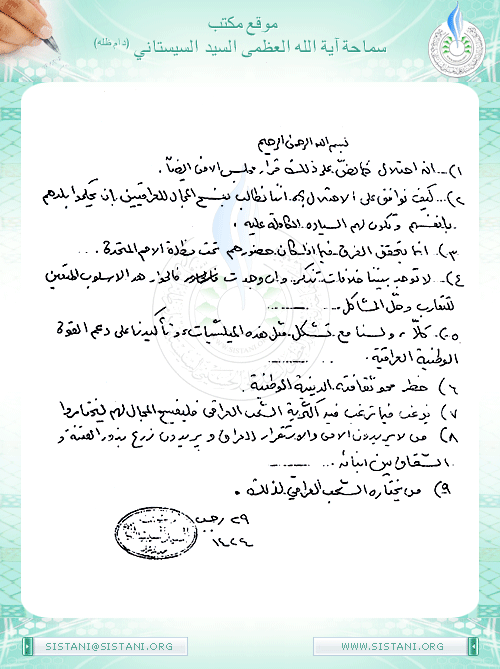 موقع مكتب
سماحة آية الله العظمى السيد السيستاني (دام ظله)
بسم الله الرحمن الرحيم
١) ... انه احتلال كما نصّ على ذلك قرار مجلس الامن ايضاً.
٢) ... كيف نوافق على الاحتلال؟ انما نطالب بفسح المجال للعراقيين ان يحكموا بلدهم
بانفسهم وتكون لهم السيادة الكاملة عليه.
٣) انما يتحقق الفرق فيما اذا كان حضورهم تحت مظلة الامم المتحدة ...
٤) ... لا توجد بيننا خلافات تذكر وان وجدت فالحوار هو الاسلوب المتعين
للتقارب وحلّ المشاكل ...
٥) ... كلّا، ولسنا مع تشكل مثل هذه الميليشيات، وتأكيدنا على دعم القوة
الوطنية العراقية ...
٦) خطر محو ثقافته الدينية الوطنية.
٧) نرغب فيما ترغب فيه اكثرية الشعب العراقي فليفسح المجال لهم ليختاروا
٨) من لا يريدون الامن والاستقرار للعراق ويريدون زرع بذور الفتنة و
الشقاق بين ابنائه ...
٩) من يختاره الشعب العراقي لذلك.
٢٩ رجب
١٤٢٤
SISTANI@SISTANI.ORG
WWW.SISTANI.ORG